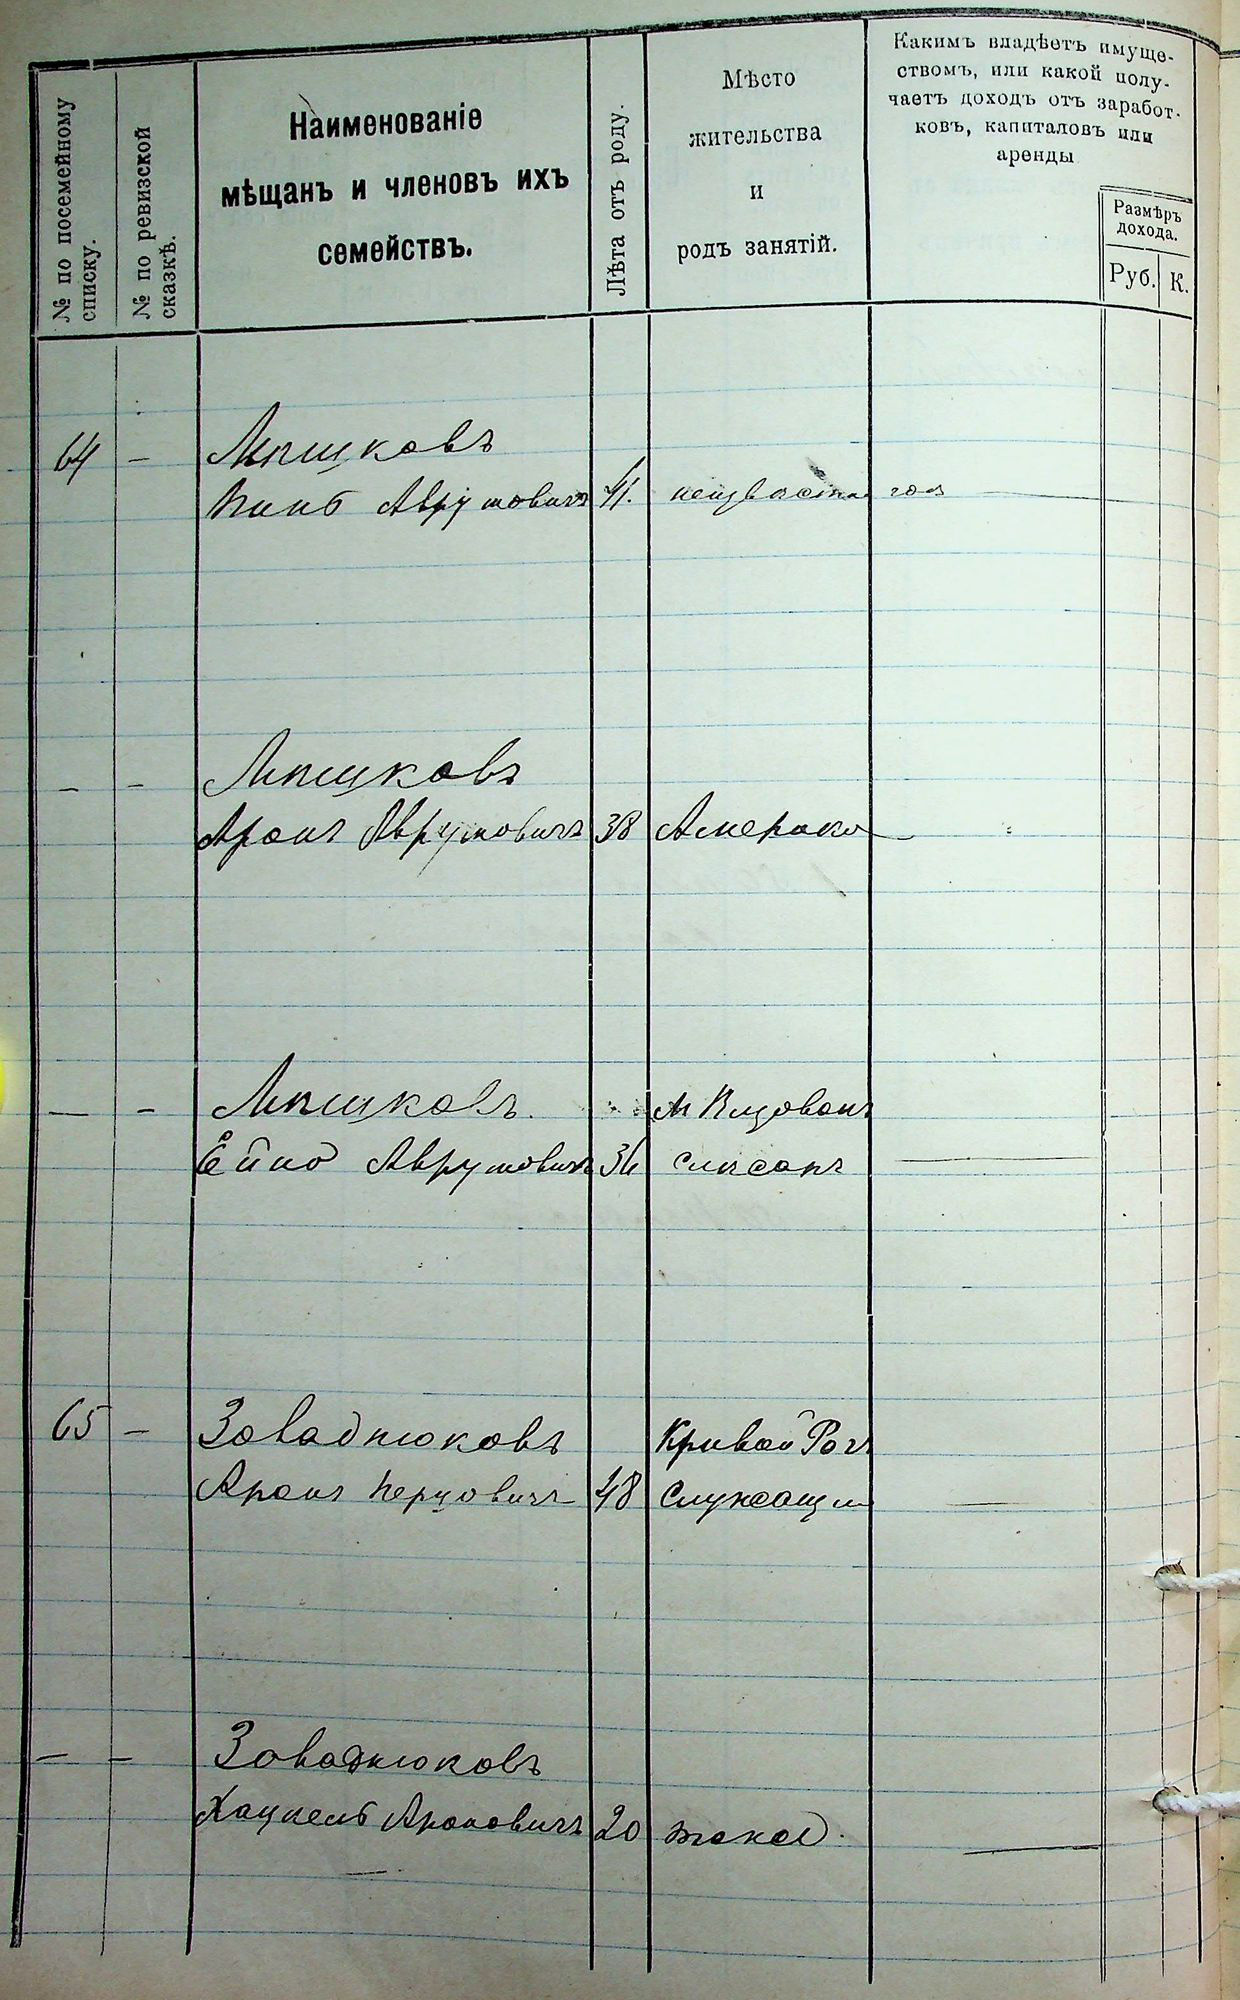 № по посемейному списку.
№ по ревизской сказкѣ.
Наименованіе
мѣщанъ и членовъ ихъ
семействъ.
Лѣта отъ роду.
Мѣсто
жительства
и
родъ занятій.
Каким владѣетъ имуще-
ствомъ, или какой полу-
чаетъ доходъ отъ заработ-
ковъ, капиталовъ или
аренды
Размѣръ
дохода.
Руб. К.
64 — Мышковъ
Аврумовичъ 41.
— — Мышковъ
Аронъ Аврумовичъ 38 Америка —
— — Мышковъ.
Аврумовичъ 36 —
65 — Заваднюковъ Кривой Рогъ
Аронъ Перцовичъ 48 Служащий —
— — Заваднюковъ
Хацкель Ароновичъ 20 —